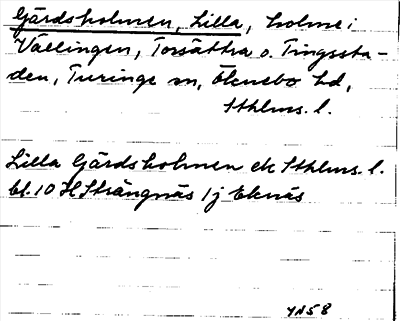 Gärdsholmen, Lilla, holme i
Vällingen, Torsättra o. Tingssta-
den, Turinge sn, Öknebo hd,
Sthlms. l.
Lilla Gärdsholmen ek Sthlms. l.
bl. 10 H Strängnäs 1 j Eknäs
YN58